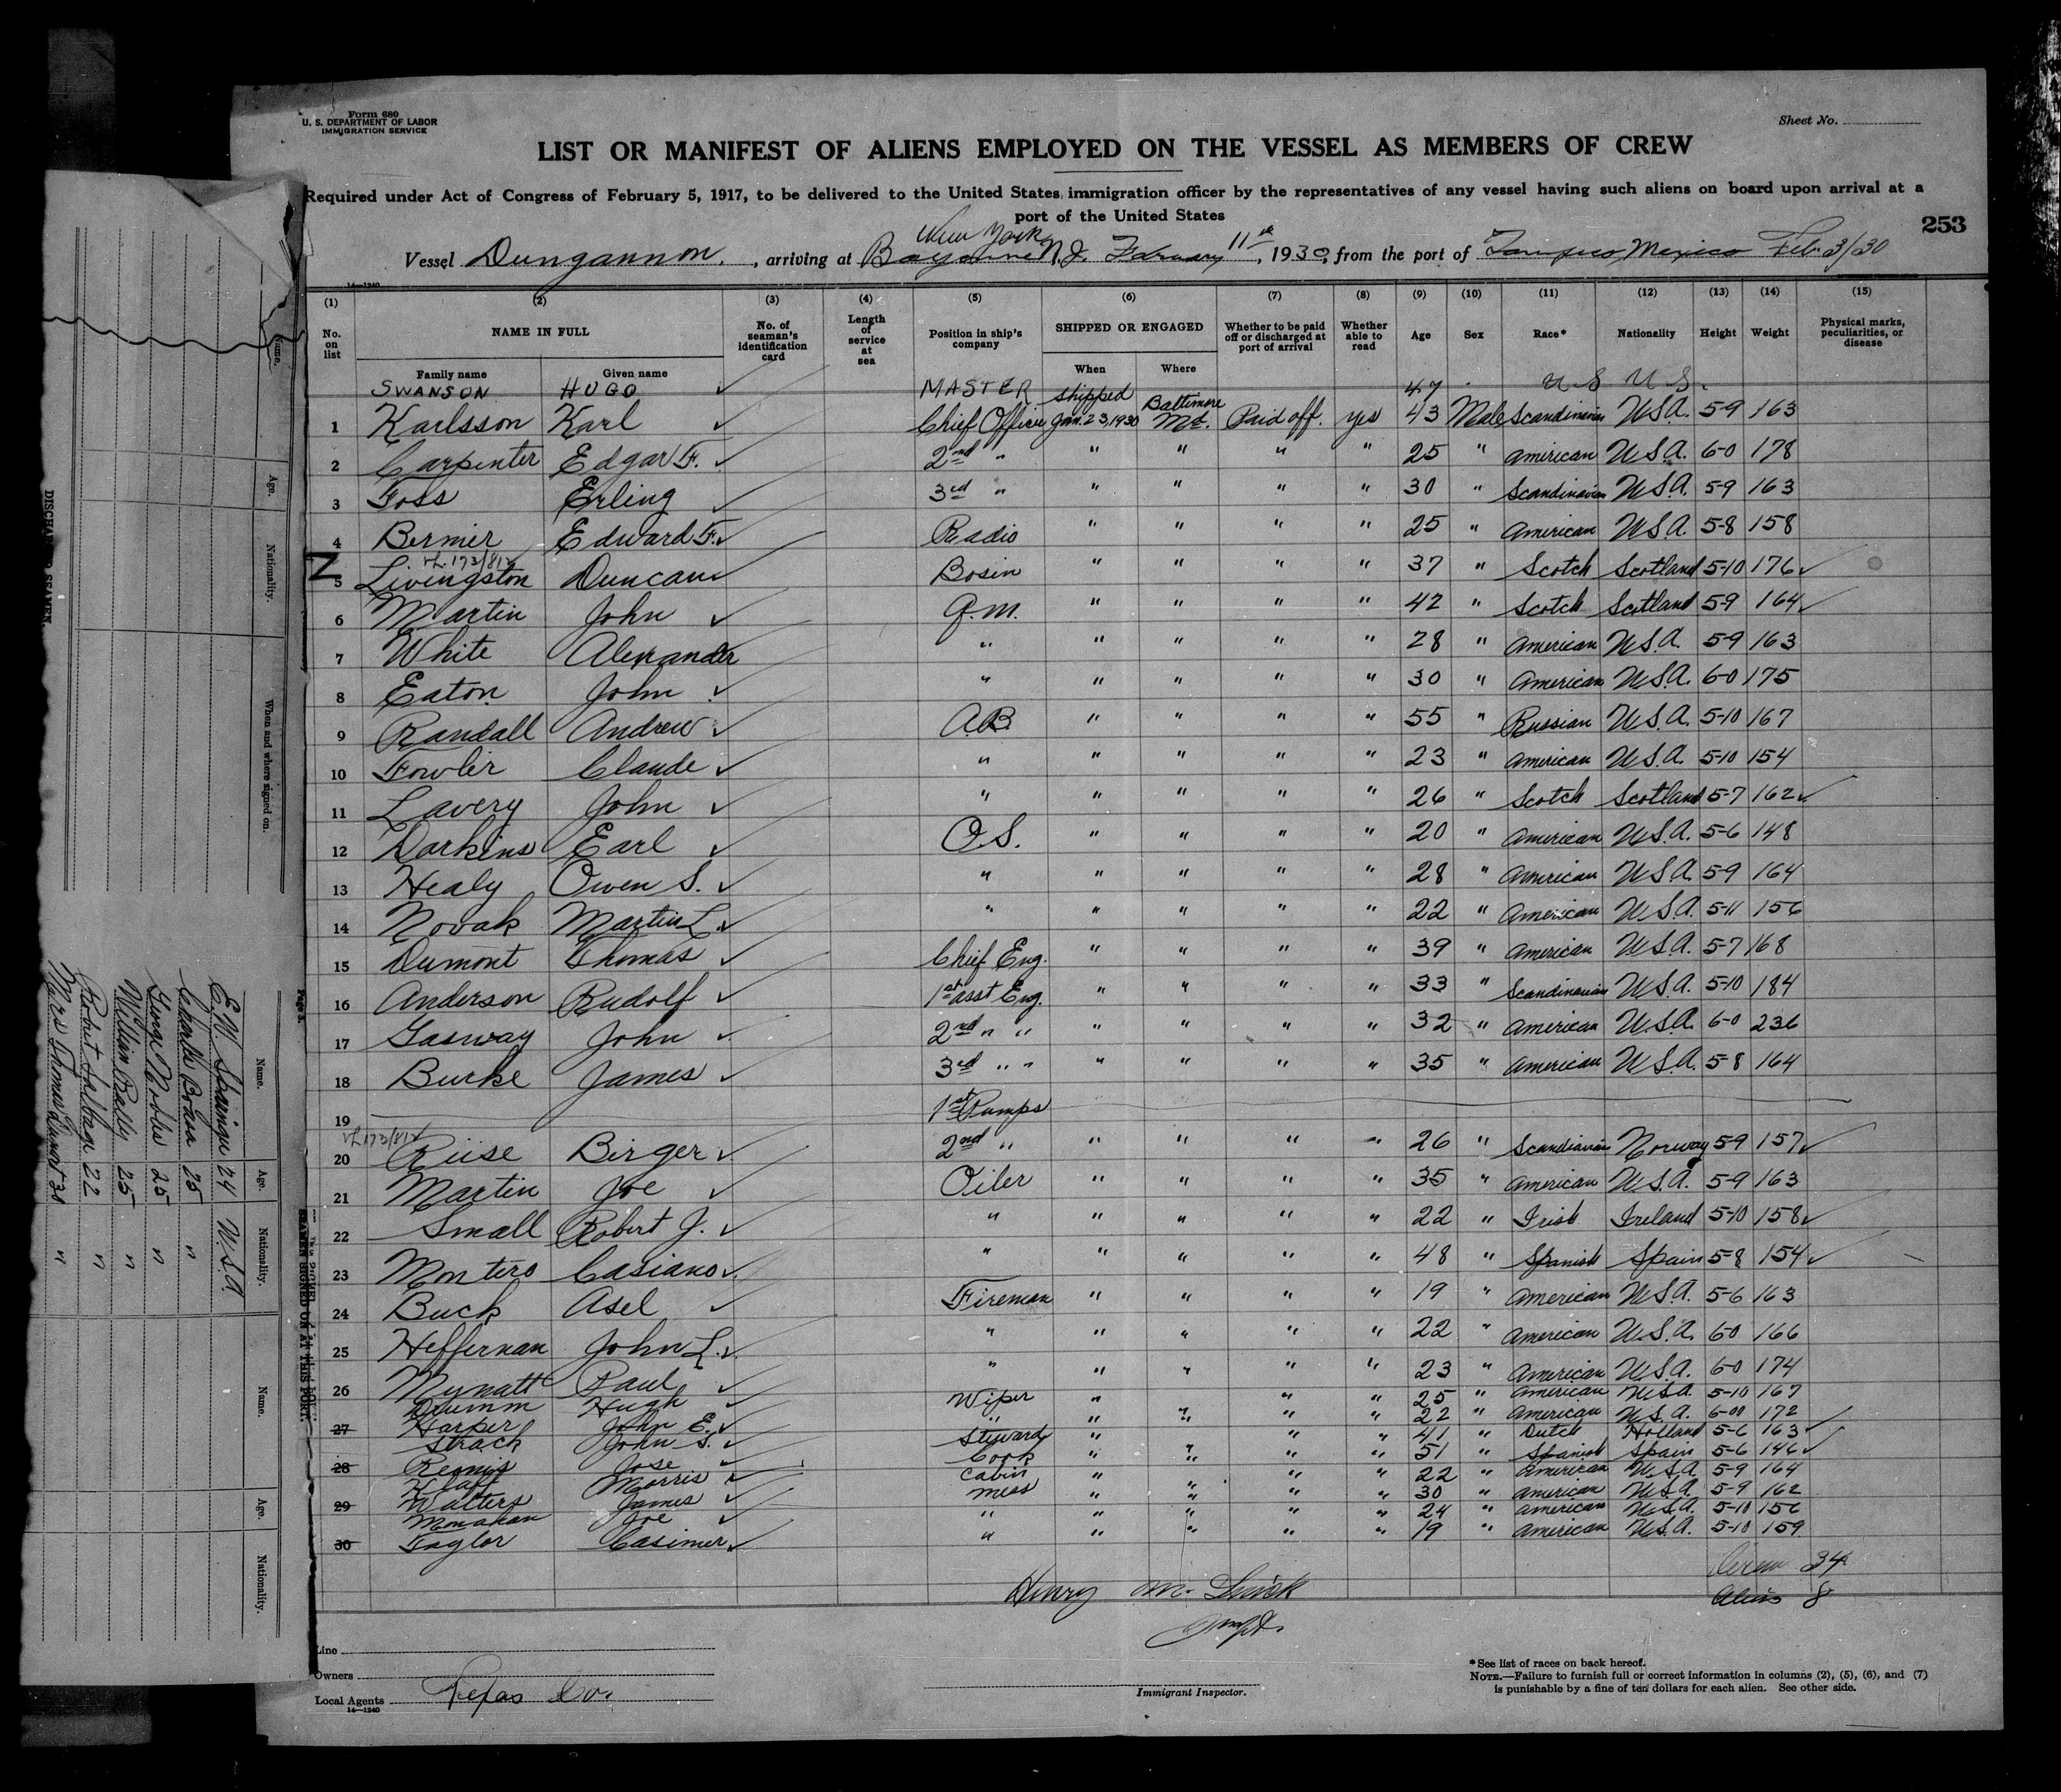 Form 680
U. S. DEPARTMENT OF LABOR
IMMIGRATION SERVICE
Sheet No.
LIST OR MANIFEST OF ALIENS EMPLOYED ON THE VESSEL AS MEMBERS OF CREW
Required under Act of Congress of February 5, 1917, to be delivered to the United States immigration officer by the representatives of any vessel having such aliens on board upon arrival at a
port of the United States
253
New York
Vessel Dungannon, arriving at Bayonne N.J. February 11th, 1930, from the port of Tampico, Mexico Feb. 3/30
14—1240
(1) (2) (3) (4) (5) (6) (7) (8) (9) (10) (11) (12) (13) (14) (15)
No. on list NAME IN FULL No. of seaman's identification card Length of service at sea Position in ship's company SHIPPED OR ENGAGED Whether to be paid off or discharged at port of arrival Whether able to read Age Sex Race* Nationality Height Weight Physical marks, peculiarities, or disease
Family name Given name When Where
SWANSON HUGO MASTER 47 U S U S.
1 Karlsson Karl Chief Officer shipped Jan. 23, 1930 Baltimore Md. Paid off. yes 43 Male Scandinavian U.S.A. 5-9 163
2 Carpenter Edgar F. 2nd " " " " " 25 " American U.S.A. 6-0 178
3 Foss Erling 3rd " " " " " 30 " Scandinavian U.S.A. 5-9 163
4 Bernier Edward F. Radio " " " " 25 " American U.S.A. 5-8 158
173/812
5 Livingston Duncan Bosin " " " " 37 " Scotch Scotland 5-10 176
6 Martin John Q.M. " " " " 42 " Scotch Scotland 5-9 164
7 White Alexander " " " " " 28 " American U.S.A. 5-9 163
8 Eaton John " " " " " 30 " American U.S.A. 6-0 175
9 Randall Andrew AB " " " " 55 " Russian U.S.A. 5-10 167
10 Fowler Claude " " " " " 23 " American U.S.A. 5-10 154
11 Lavery John " " " " " 26 " Scotch Scotland 5-7 162
12 Darkins Earl O.S. " " " " 20 " American U.S.A. 5-6 148
13 Healy Owen S. " " " " " 28 " American U.S.A. 5-9 164
14 Novak Martin L. " " " " " 22 " American U.S.A. 5-11 156
15 Dumont Thomas Chief Eng. " " " " 39 " American U.S.A. 5-7 168
16 Anderson Rudolf 1st asst Eng. " " " " 33 " Scandinavian U.S.A. 5-10 184
17 Gasway John 2nd " " " " " " 32 " American U.S.A. 6-0 236
18 Burke James 3rd " " " " " " 35 " American U.S.A. 5-8 164
19 1st Pumps
173/812
20 Riise Birger 2nd " " " " " 26 " Scandianian Norway 5-9 157
21 Martin Joe Oiler " " " " 35 " American U.S.A. 5-9 163
22 Small Robert J. " " " " " 22 " Irish Ireland 5-10 158
23 Montero Casiano " " " " " 48 " Spanish Spain 5-8 154
24 Buck Asel Fireman " " " " 19 " American U.S.A. 5-6 163
25 Heffernan John L. " " " " " 22 " American U.S.A. 6-0 166
26 Mynatt Paul " " " " " 23 " American U.S.A. 6-0 174
Drumm Hugh Wiper " " " " 25 " American U.S.A. 5-10 167
27 Harper John E. " " " " " 22 " American U.S.A. 6-00 172
Strack John S. Steward " " " " 41 " Dutch Holland 5-6 163
28 Jose Cook " " " " 51 " Spanish Spain 5-6 146
Morris Cabin " " " " 22 " American U.S.A. 5-9 164
29 Walters James mess " " " " 30 " American U.S.A. 5-9 162
Monahan Joe " " " " " 24 " American U.S.A. 5-10 156
30 Taylor Casimer " " " " " 19 " American U.S.A. 5-10 159
Crew 34
Aliens 8
Henry M.
Line
Owners
Local Agents Texas Co.
14—1240
Immigrant Inspector.
*See list of races on back hereof.
NOTE.—Failure to furnish full or correct information in columns (2), (5), (6), and (7)
is punishable by a fine of ten dollars for each alien. See other side.
Page 3.
SEAMEN SIGNED ON AT THIS PORT.
Name. Age. Nationality. Name. Age. Nationality.
24 U.S.A
Charles 25 "
George Nobbs 25 "
William 25 "
Robert 22 "
Thomas "
DISCHARGED SEAMEN.
Name. Age. Nationality. When and where signed on.